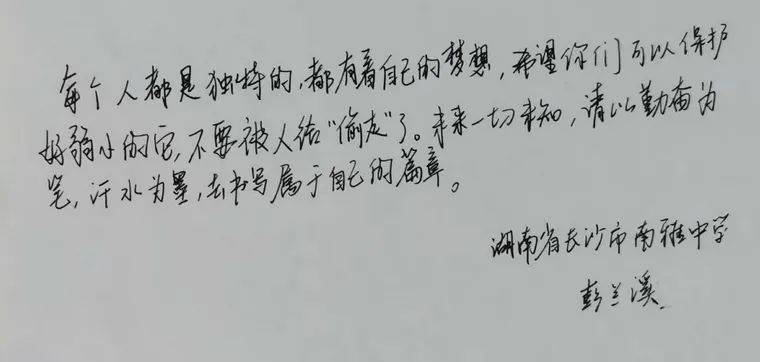 每个人都是独特的，都有着自己的梦想，希望你们可以保护
好弱小的它，不要被人给“偷走”了。未来一切未知，请以勤奋为
笔，汗水为墨，去书写属于自己的篇章。
湖南省长沙市南雅中学
彭兰溪